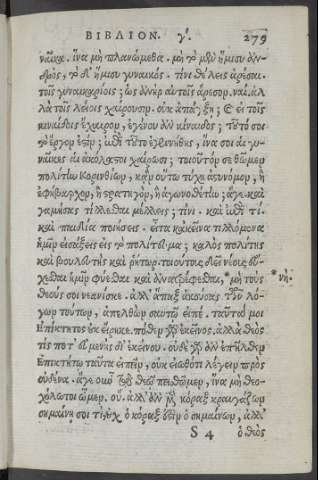 ΒΙΒΛΙΟΝ. γ'. 279
ναῖκα. ἵνα μὴ πλανώμεθα. μὴ τὸ μὲν ἥμισυ ἀν-
δρὸς, τὸ δ' ἥμισυ γυναικός. τίνι θέλεις ἀρέσαι.
τοῖς γυναικαρίοις; ὡς ἀνὴρ αὐτοῖς ἄρεσον. ναί. ἀλ
λὰ τοῖς λείοις χαίρουσιν. οὐκ ἀπάγξῃ; καὶ εἰ τοῖς
κιναίδοις ἔχαιρον, ἐγένου ἂν κίναιδος; τοῦτό σοι
τὸ ἔργον ἐστίν; ἐπὶ τοῦτο ἐγεννήθης, ἵνα σοι αἱ γυ-
ναῖκες αἱ ἀκόλαστοι χαίρωσι; τοιοῦτόν σε θῶμεν
πολίτην Κορινθίων, κἂν οὕτω τύχῃ ἀστυνόμον, ἢ
ἐφήβαρχον, ἢ στρατηγὸν, ἢ ἀγωνοθέτην; ἄγε. καὶ
γαμήσας τίλλεσθαι μέλλεις; τίνι. καὶ ἐπὶ τί.
καὶ παιδία ποιήσεις. εἶτα κἀκεῖνα τιλλόμενα
ἡμῖν εἰσάξεις εἰς τὸ πολίτευμα; καλὸς πολίτης
καὶ βουλευτὴς καὶ ῥήτωρ. τοιούτους δεῖ νέους εὔ-
χεσθαι ἡμῖν φύεσθαι καὶ ἀνατρέφεσθαι, * μὴ τοὺς * νὴ.
θεούς σοι νεανίσκε. ἀλλ' ἅπαξ ἀκούσας τῶν λό-
γων τούτων, ἀπελθὼν σαυτῷ εἰπέ. ταῦτά μοι
Ἐπίκτητος οὐκ εἴρηκε. πόθεν γὰρ ἐκεῖνος. ἀλλὰ θεός
τίς ποτ' εὐμενὴς δι' ἐκείνου. οὐδὲ γὰρ ἂν ἐπῆλθεν
Ἐπικτήτῳ ταῦτα εἰπεῖν, οὐκ εἰωθότι λέγειν πρὸς
οὐδένα. ἄγε οὖν τῷ θεῷ πεισθῶμεν, ἵνα μὴ θεο-
χόλωτοι ὦμεν. οὔ. ἀλλ' ἂν μὲν κόραξ κραυγάζων
σημαίνῃ σοί τι, οὐχ ὁ κόραξ ἐστὶν ὁ σημαίνων, ἀλλ'
S 4 ὁ θεὸς